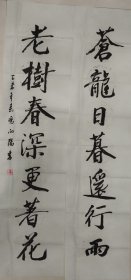 蒼龍日暮還行雨
老樹春深更著花